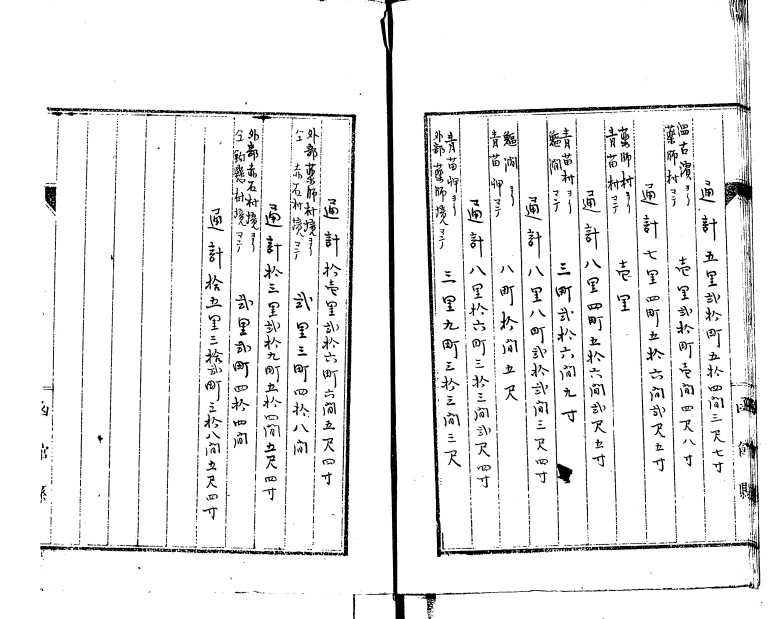 函館縣
通計 五里弐拾町五拾四間三尺七寸
温古濱ヨリ
薬師村マテ 壱里弐拾町壱間四尺八寸
通計 七里四町五拾六間弐尺五寸
薬師村ヨリ
青苗村マテ 壱里
通計 八里四町五拾六間弐尺五寸
青苗村ヨリ
澗マテ 三町弐拾六間九寸
通計 八里八町弐拾弐間三尺四寸
澗ヨリ
青苗岬マテ 八町拾間五尺
通計 八里拾六町三拾三間弐尺四寸
青苗岬ヨリ
外部薬師境マテ 三里九町三拾三間三尺
通計 拾壱里弐拾六町六間五尺四寸
外部薬師村境ヨリ
仝 赤石村境マテ 弐里三町四拾八間
通計 拾三里弐拾九町五拾四間五尺四寸
外部赤石村境ヨリ
仝 釣懸村境マテ 弐里弐町四拾四間
通計 拾五里三拾弐町三拾八間五尺四寸
函館縣